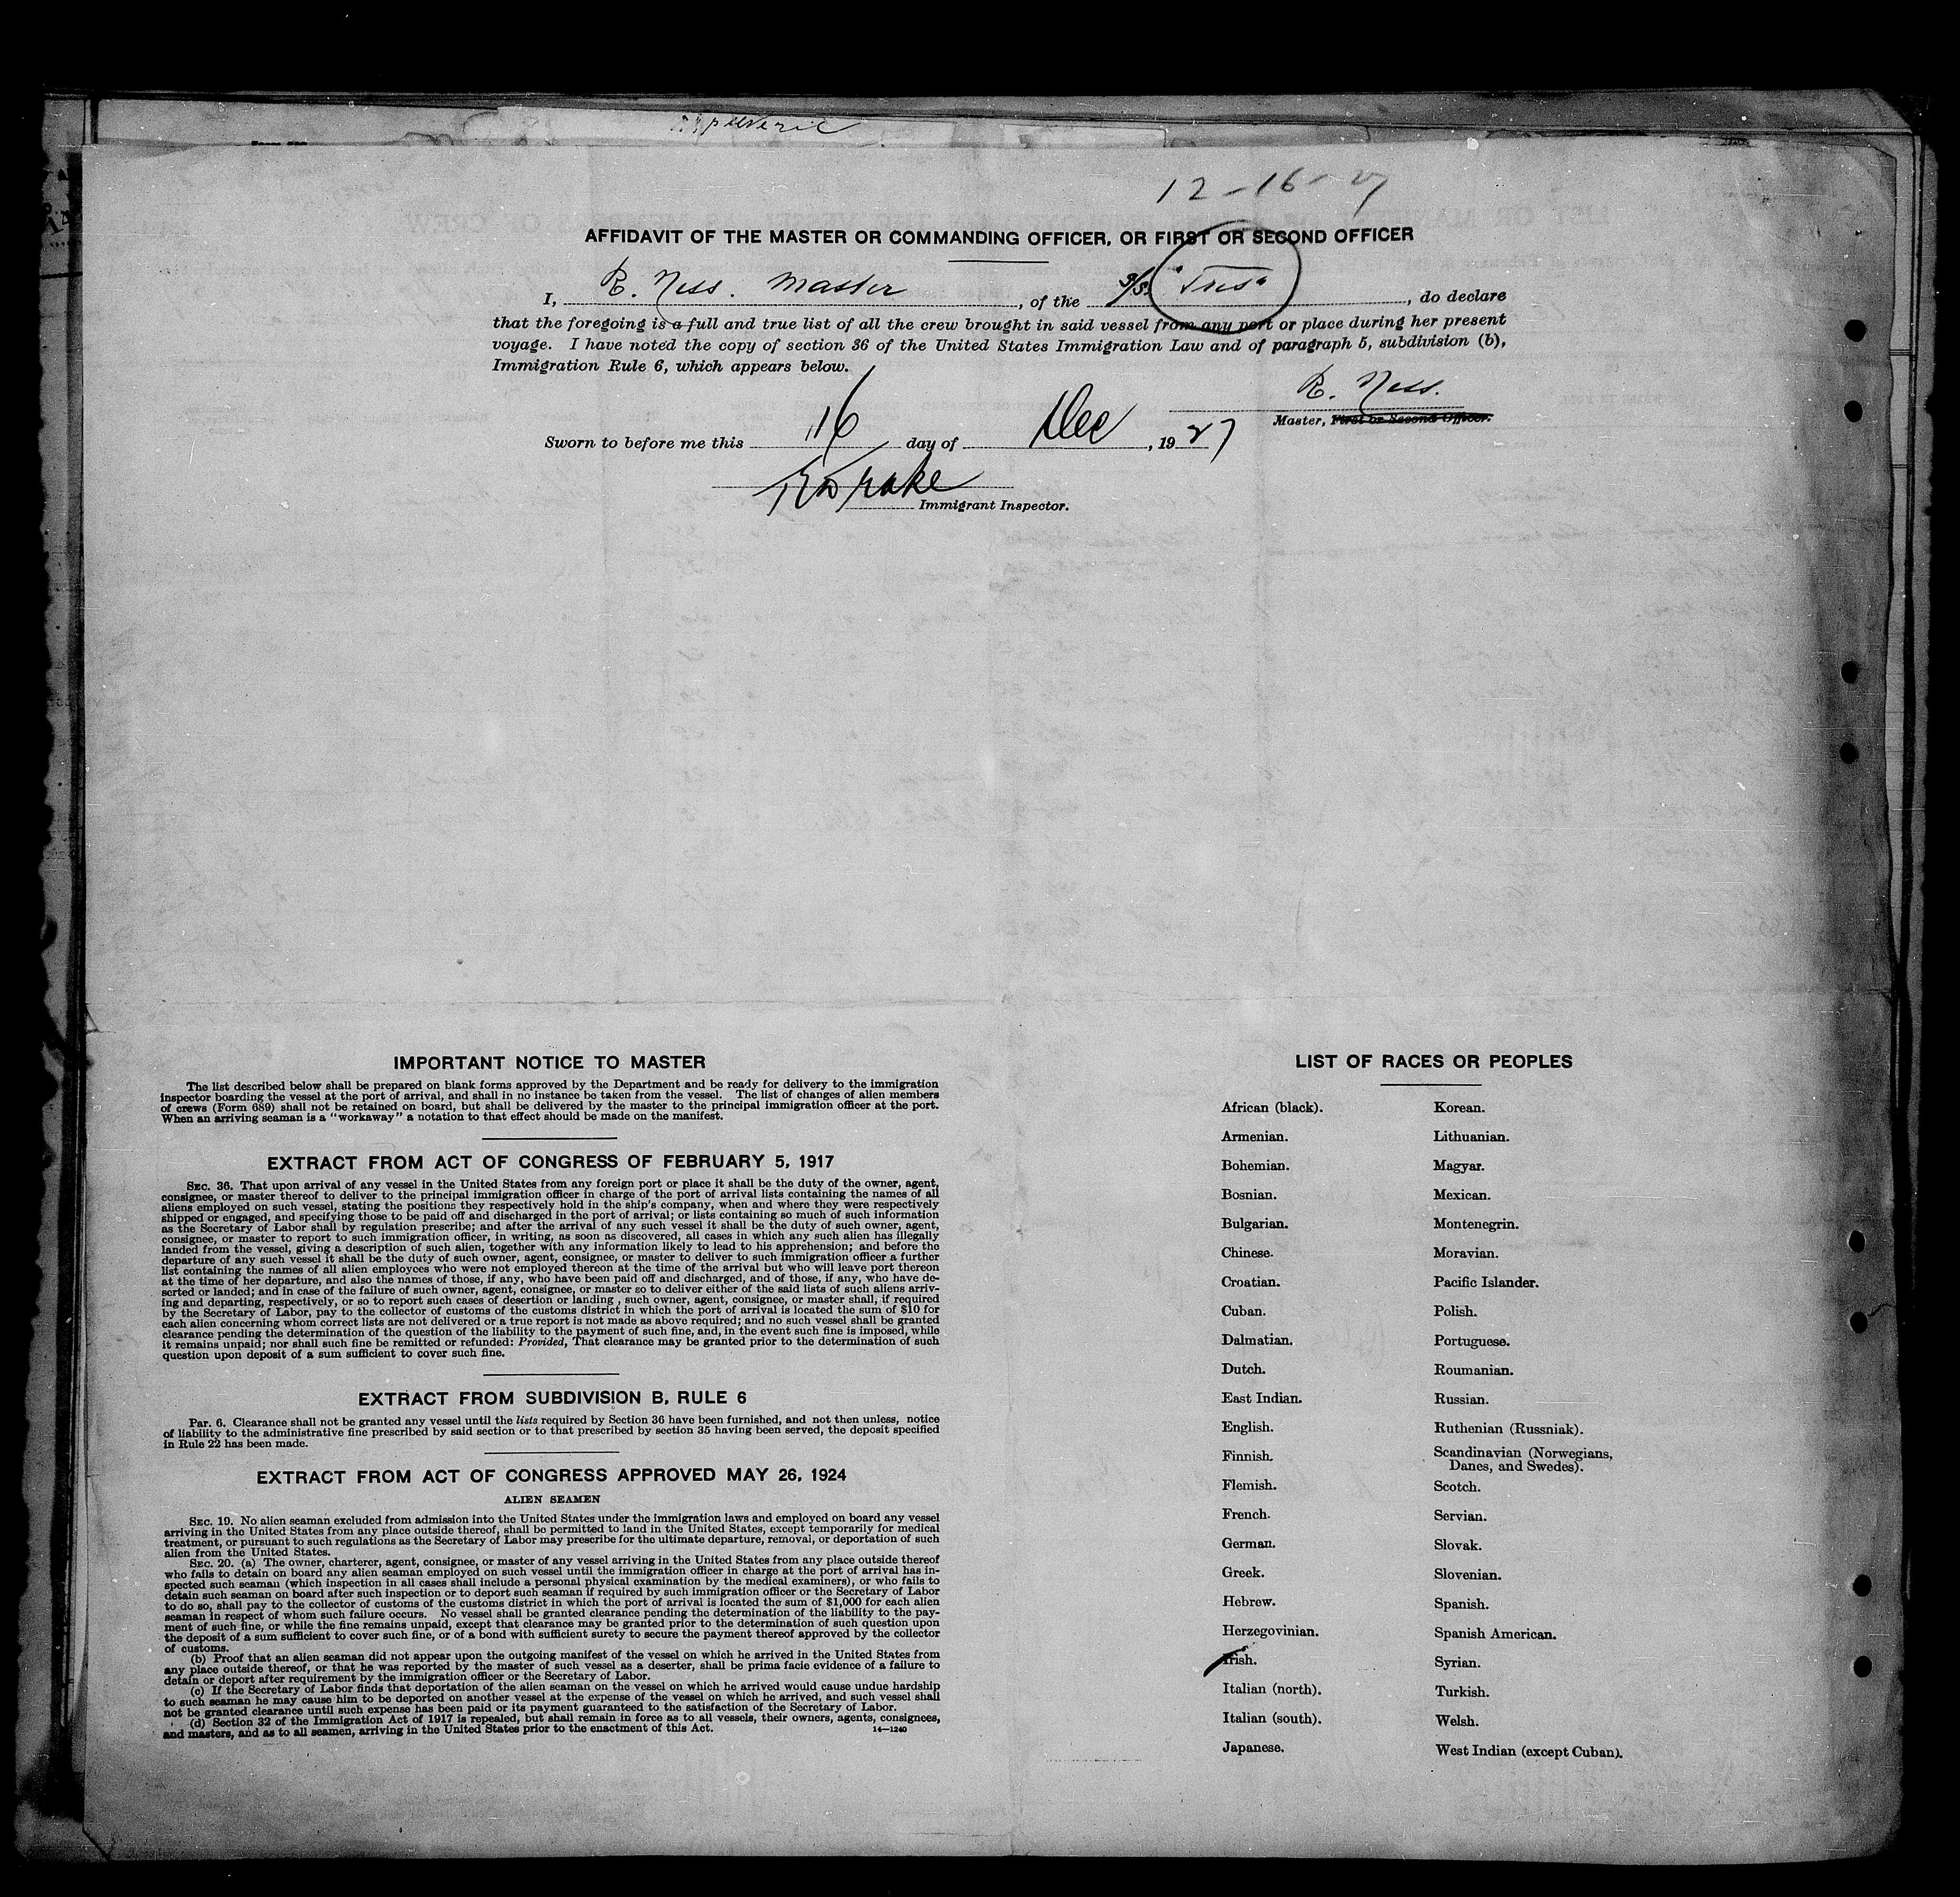 12-16-27
AFFIDAVIT OF THE MASTER OR COMMANDING OFFICER, OR FIRST OR SECOND OFFICER
I, R. Ness. Master, of the S/S, do declare
that the foregoing is a full and true list of all the crew brought in said vessel from any port or place during her present
voyage. I have noted the copy of section 36 of the United States Immigration Law and of paragraph 5, subdivision (b),
Immigration Rule 6, which appears below.
R. Ness.
Master, First or Second Officer.
Sworn to before me this 16 day of Dec, 1927
Drake
Immigrant Inspector.
IMPORTANT NOTICE TO MASTER
The list described below shall be prepared on blank forms approved by the Department and be ready for delivery to the immigration
inspector boarding the vessel at the port of arrival, and shall in no instance be taken from the vessel. The list of changes of alien members
of crews (Form 689) shall not be retained on board, but shall be delivered by the master to the principal immigration officer at the port.
When an arriving seaman is a "workaway" a notation to that effect should be made on the manifest.
EXTRACT FROM ACT OF CONGRESS OF FEBRUARY 5, 1917
SEC. 36. That upon arrival of any vessel in the United States from any foreign port or place it shall be the duty of the owner, agent,
consignee, or master thereof to deliver to the principal immigration officer in charge of the port of arrival lists containing the names of all
aliens employed on such vessel, stating the positions they respectively hold in the ship's company, when and where they were respectively
shipped or engaged, and specifying those to be paid off and discharged in the port of arrival; or lists containing so much of such information
as the Secretary of Labor shall by regulation prescribe; and after the arrival of any such vessel it shall be the duty of such owner, agent,
consignee, or master to report to such immigration officer, in writing, as soon as discovered, all cases in which any such alien has illegally
landed from the vessel, giving a description of such alien, together with any information likely to lead to his apprehension; and before the
departure of any such vessel it shall be the duty of such owner, agent, consignee, or master to deliver to such immigration officer a further
list containing the names of all alien employees who were not employed thereon at the time of the arrival but who will leave port thereon
at the time of her departure, and also the names of those, if any, who have been paid off and discharged, and of those, if any, who have de-
serted or landed; and in case of the failure of such owner, agent, consignee, or master so to deliver either of the said lists of such aliens arriv-
ing and departing, respectively, or so to report such cases of desertion or landing , such owner, agent, consignee, or master shall, if required
by the Secretary of Labor, pay to the collector of customs of the customs district in which the port of arrival is located the sum of $10 for
each alien concerning whom correct lists are not delivered or a true report is not made as above required; and no such vessel shall be granted
clearance pending the determination of the question of the liability to the payment of such fine, and, in the event such fine is imposed, while
it remains unpaid; nor shall such fine be remitted or refunded: Provided, That clearance may be granted prior to the determination of such
question upon deposit of a sum sufficient to cover such fine.
EXTRACT FROM SUBDIVISION B, RULE 6
Par. 6. Clearance shall not be granted any vessel until the lists required by Section 36 have been furnished, and not then unless, notice
of liability to the administrative fine prescribed by said section or to that prescribed by section 35 having been served, the deposit specified
in Rule 22 has been made.
EXTRACT FROM ACT OF CONGRESS APPROVED MAY 26, 1924
ALIEN SEAMEN
SEC. 19. No alien seaman excluded from admission into the United States under the immigration laws and employed on board any vessel
arriving in the United States from any place outside thereof, shall be permitted to land in the United States, except temporarily for medical
treatment, or pursuant to such regulations as the Secretary of Labor may prescribe for the ultimate departure, removal, or deportation of such
alien from the United States.
SEC. 20. (a) The owner, charterer, agent, consignee, or master of any vessel arriving in the United States from any place outside thereof
who fails to detain on board any alien seaman employed on such vessel until the immigration officer in charge at the port of arrival has in-
spected such seaman (which inspection in all cases shall include a personal physical examination by the medical examiners), or who fails to
detain such seaman on board after such inspection or to deport such seaman if required by such immigration officer or the Secretary of Labor
to do so, shall pay to the collector of customs of the customs district in which the port of arrival is located the sum of $1,000 for each alien
seaman in respect of whom such failure occurs. No vessel shall be granted clearance pending the determination of the liability to the pay-
ment of such fine, or while the fine remains unpaid, except that clearance may be granted prior to the determination of such question upon
the deposit of a sum sufficient to cover such fine, or of a bond with sufficient surety to secure the payment thereof approved by the collector
of customs.
(b) Proof that an alien seaman did not appear upon the outgoing manifest of the vessel on which he arrived in the United States from
any place outside thereof, or that he was reported by the master of such vessel as a deserter, shall be prima facie evidence of a failure to
detain or deport after requirement by the immigration officer or the Secretary of Labor.
(c) If the Secretary of Labor finds that deportation of the alien seaman on the vessel on which he arrived would cause undue hardship
to such seaman he may cause him to be deported on another vessel at the expense of the vessel on which he arrived, and such vessel shall
not be granted clearance until such expense has been paid or its payment guaranteed to the satisfaction of the Secretary of Labor.
(d) Section 32 of the Immigration Act of 1917 is repealed, but shall remain in force as to all vessels, their owners, agents, consignees,
and masters, and as to all seamen, arriving in the United States prior to the enactment of this Act.
14—1240
LIST OF RACES OR PEOPLES
African (black).
Armenian.
Bohemian.
Bosnian.
Bulgarian.
Chinese.
Croatian.
Cuban.
Dalmatian.
Dutch.
East Indian.
English.
Finnish.
Flemish.
French.
German.
Greek.
Hebrew.
Herzegovinian.
Irish.
Italian (north).
Italian (south).
Japanese.
Korean.
Lithuanian.
Magyar.
Mexican.
Montenegrin.
Moravian.
Pacific Islander.
Polish.
Portuguese.
Roumanian.
Russian.
Ruthenian (Russniak).
Scandinavian (Norwegians,
Danes, and Swedes).
Scotch.
Servian.
Slovak.
Slovenian.
Spanish.
Spanish American.
Syrian.
Turkish.
Welsh.
West Indian (except Cuban).